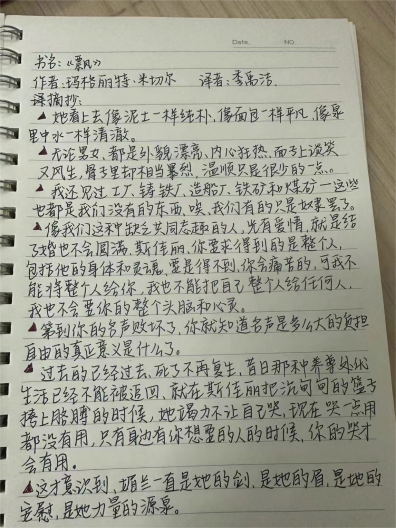 Date. NO.
书名:《飘》
作者:玛格丽特·米切尔 译者:李禹洁
译摘抄:
▲她看上去像泥土一样纯朴,像面包一样平凡,像泉
里中水一样清澈。
▲无论男女,都是外貌漂亮、内心狂热,面子上谈笑
又风生,骨子里却相当暴烈,温顺只是很少的一点。
▲我还见过工厂、铸铁厂、造船厂、铁矿和煤矿一这些
也都是我们没有的东西,唉,我们有的只是奴隶罢了。
▲像我们这种缺乏共同志趣的人,光有爱情,就是结
了婚也不会圆满,斯佳丽,你要求得到的是整个人,
包括他的身体和灵魂,要是得不到,你会痛苦的,可我不
能将整个人给你,我也不能把自己整个人给任何人,
我也不会要你的整个头脑和心灵。
▲等到你的名声败坏了,你就知道名声是多么大的负担
自由的真正意义是什么了。
▲过去的已经过去,死了不再复生,昔日那种养尊处优
生活已经不能被追回,就在斯佳丽把沉甸甸的篮子
挎上胳膊的时候,她竭力不让自己哭,现在哭一点用
都没有用,只有身边有你想要的人的时候,你的哭才
会有用。
▲这才意识到,媚兰一直是她的剑,是她的盾,是她的
安慰,是她力量的源泉。